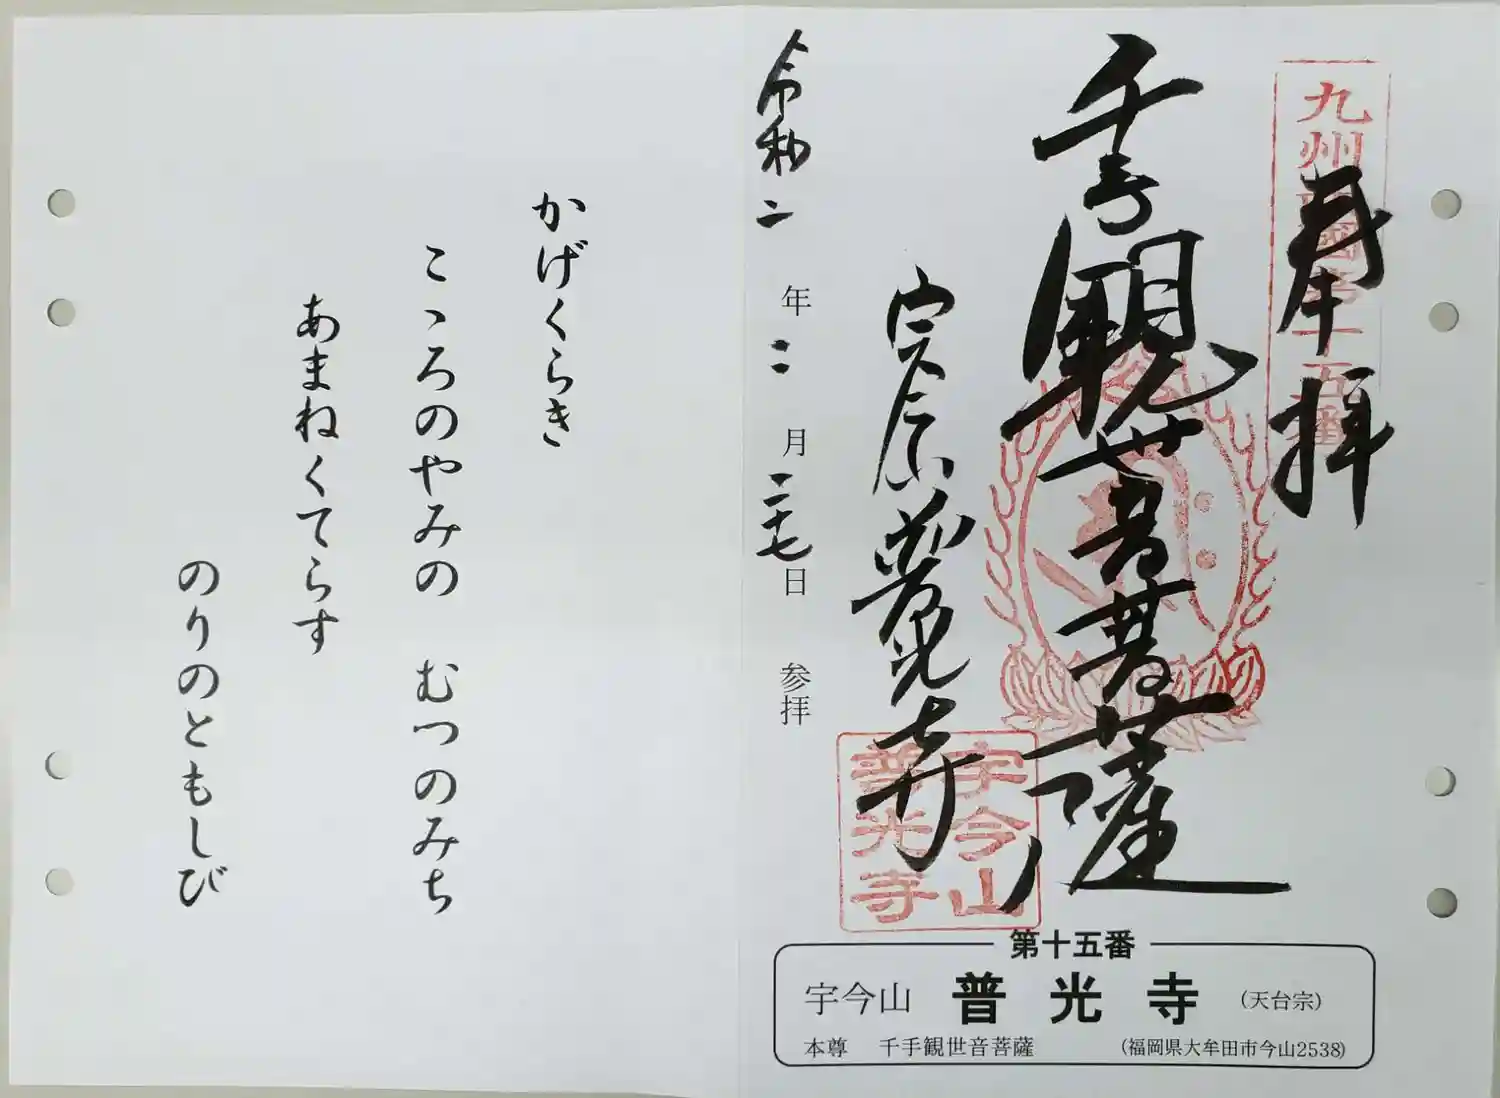 九州西国第十五番
奉拝
千手観世音菩薩
宇今山
普光寺
宇今山
普光寺
令和二年二月二十七日参拝
第十五番
宇今山 普光寺 (天台宗)
本尊 千手観世音菩薩 (福岡県大牟田市今山2538)
かげくらき
こゝろのやみの むつのみち
あまねくてらす
のりのともしび